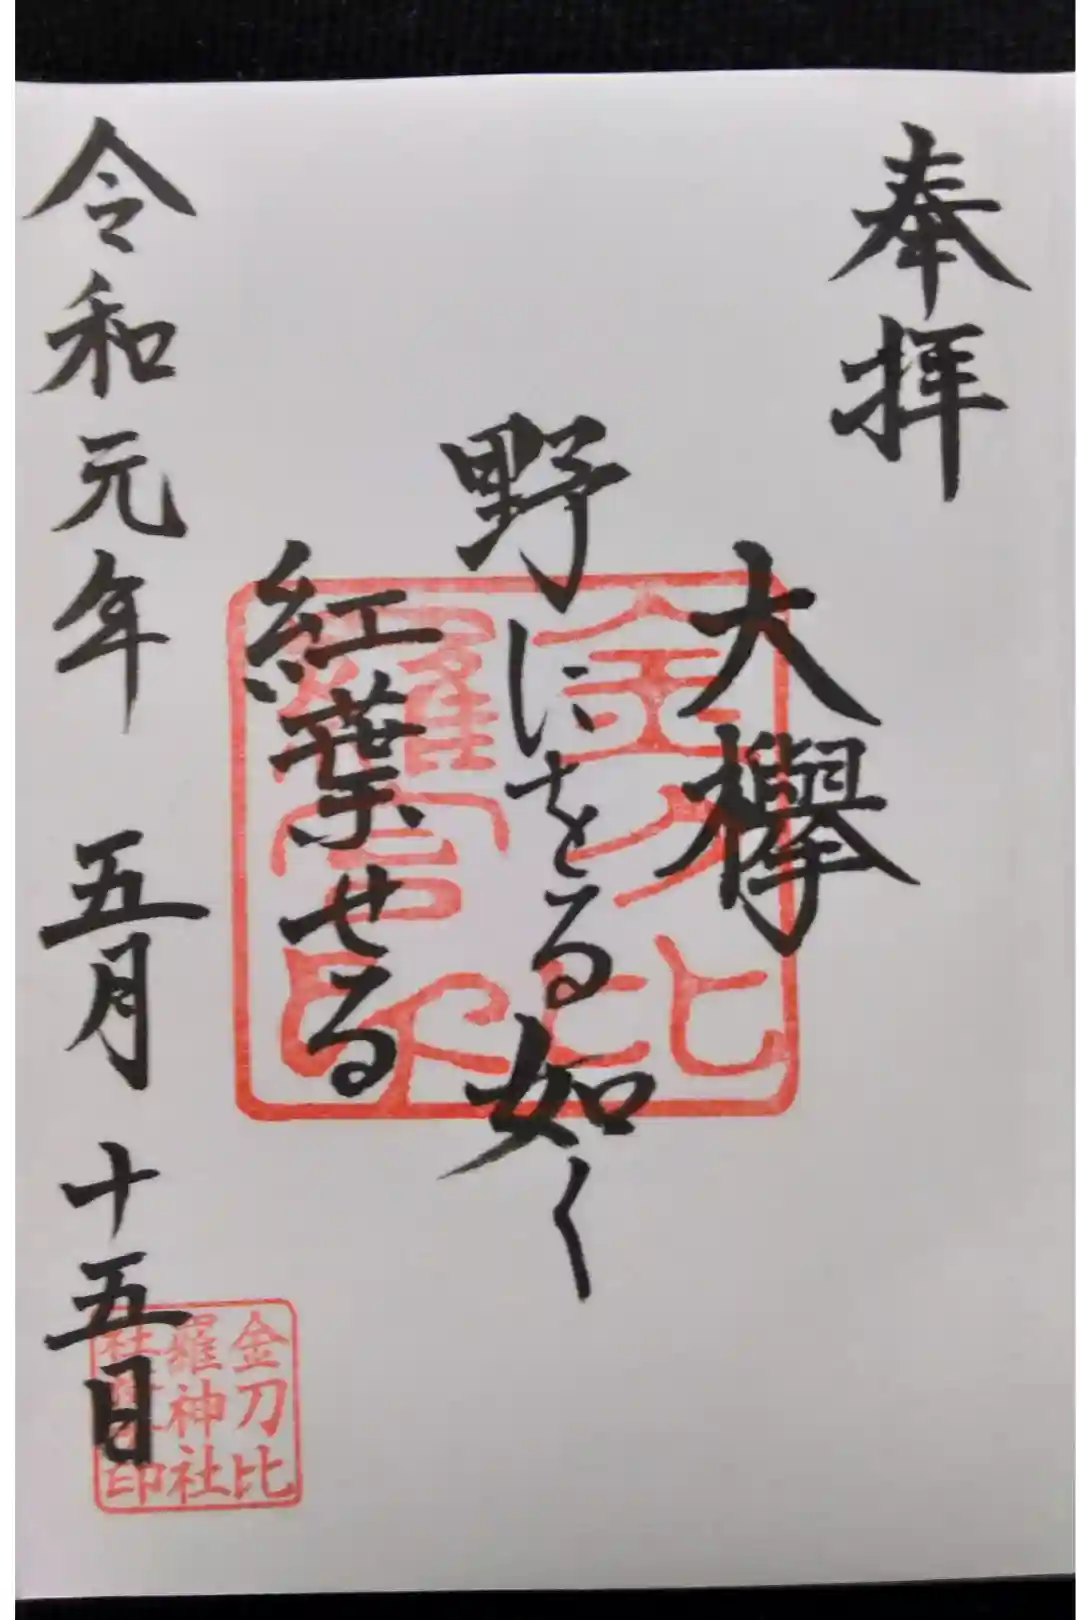 奉拝
大欅
野にをる如く
紅葉せる
令和元年 五月 十五日
金刀比
羅宮印
金刀比
羅神社
社務印